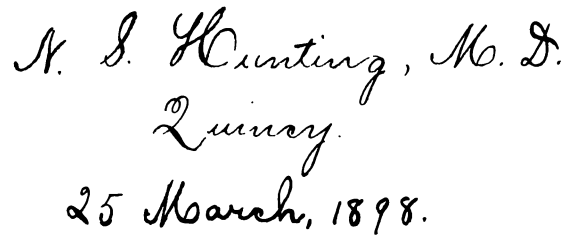 N. S. Hunting, M. D.
Quincy.
25 March, 1898.